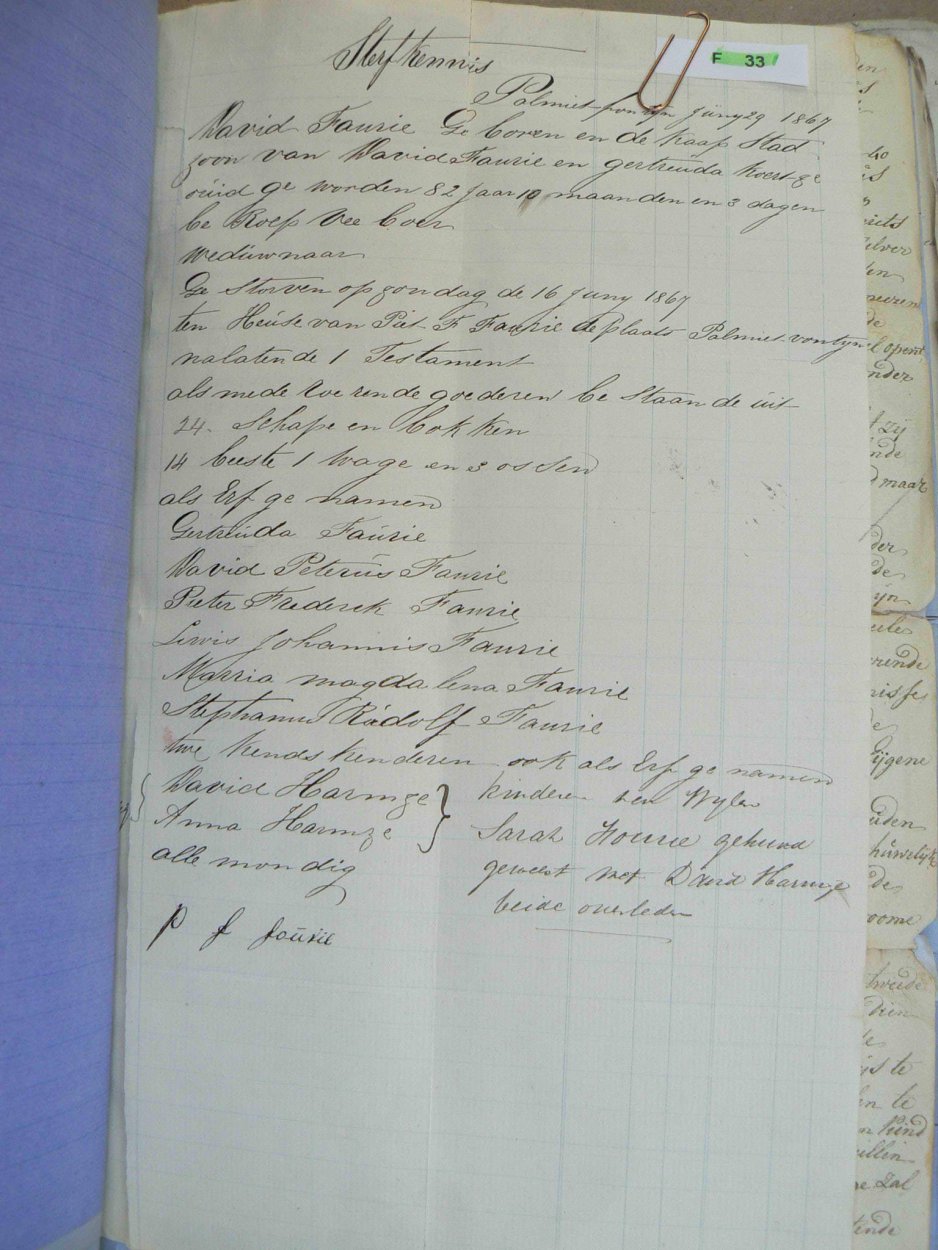 Sterf kennis
F 33
Palmiet fontyn Juny 29 1867
David Faurie Ge boren en de Kaap Stad
zoon van David Faurie en gertruida Koertze
oud ge worden 82 Jaar 10 maanden en 3 dagen
be Roep Vee boer
weduwnaar
Ge storven op zondag de 16 Juny 1867
ten Heuse van Piet F Faurie de plaats Palmiet vontyn
nalaten de 1 Testament
als mede roe rende goederen be staan de uit
24 Schape en bok ken
14 beeste 1 wage en 3 os sen
als Erf ge namen
Gertruida Faurie
David Peterus Faurie
Pieter Frederek Faurie
Lewis Johannis Faurie
Marria magda lena Faurie
Stephanus Rudolf Faurie
twe kends kenderen ook als Erf ge namen
David Harmze
Anna Harmze
alle mondig
kinderen van Wylen
Sarah Fourie gehuud
geweest met David Harmze
beide overleden
P J Fourie